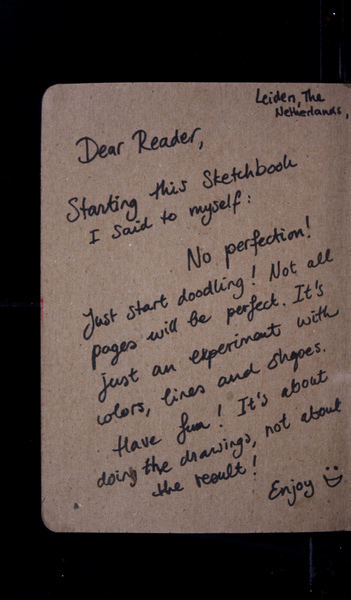 Leiden, The
Netherlands,
Dear Reader,
Starting this Sketchbook
I said to myself:
No perfection!
Just start doodling! Not all
pages will be perfect. It's
just an experiment with
colors, lines and shapes.
Have fun! It's about
doing the drawings, not about
the result!
Enjoy